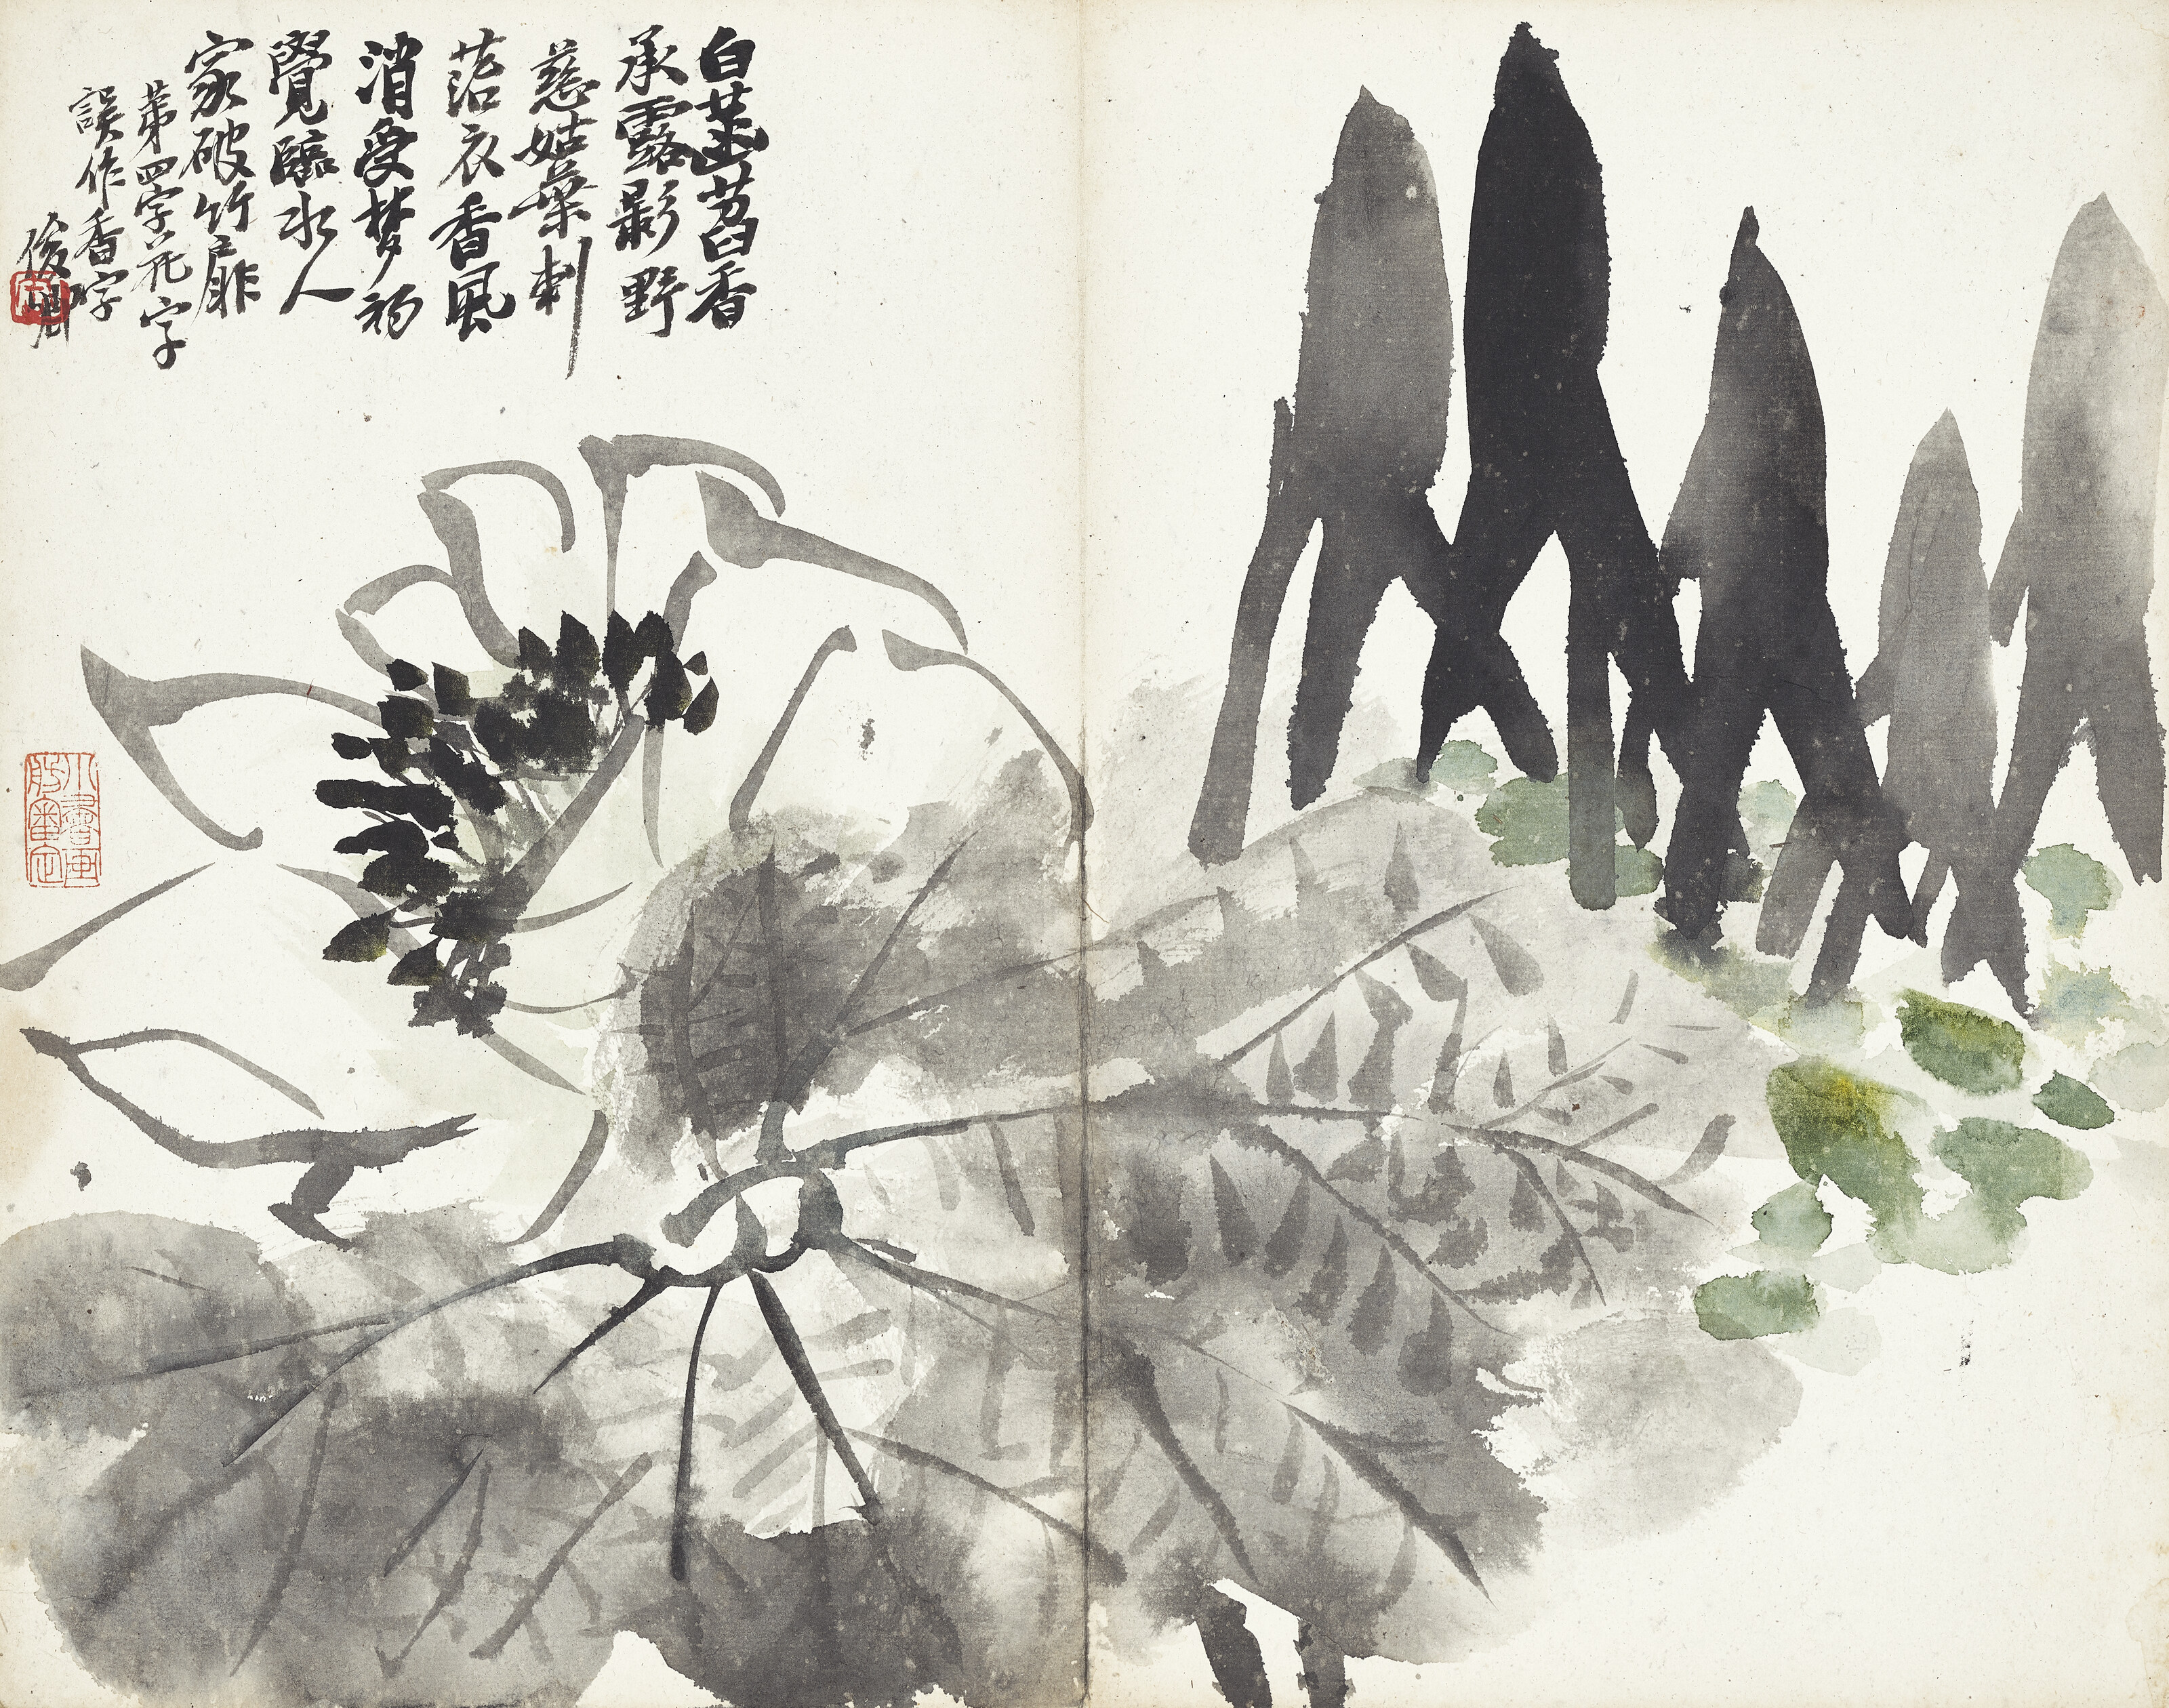 白菡萏香
承露影野
慈姑葉刺
菭衣香風
消受梦初
覺臨水人
家破竹扉
第四字花字
誤作香字
俊卿